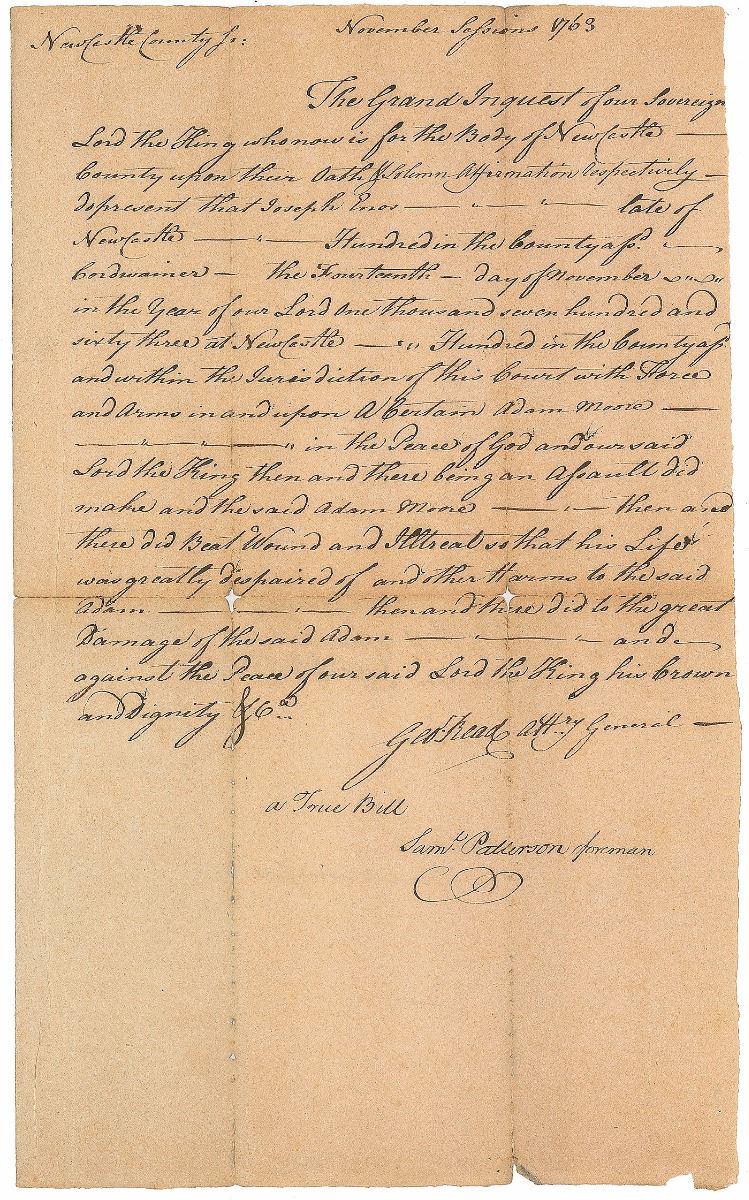 NewCastle County ss:
November Sessions 1763
The Grand Inquest of our Sovereign
Lord the King who now is for the Body of NewCastle —
County upon their Oath & Solemn Affirmation respectively —
do present that Joseph Enos — " — " — late of
NewCastle — " — Hundred in the County afsd. " —
Cordwainer — the Fourteenth — day of November
in the Year of our Lord One thousand seven hundred and
sixty three at NewCastle — " Hundred in the County afsd
and within the Jurisdiction of this Court with Force
and Arms in and upon A Certain Adam Moore —
— " — " — " in the Peace of God and our said
Lord the King then and there being an Assault did
make and the said Adam Moore — " — then and
there did Beat Wound and Illtreat so that his Life
was greatly despaired of and other Harms to the said
Adam — " — then and there did to the great
Damage of the said Adam — " — " and
against the Peace of our said Lord the King his Crown
and Dignity &Ca
Geo: Read Attry General —
a True Bill
Saml. Patterson foreman